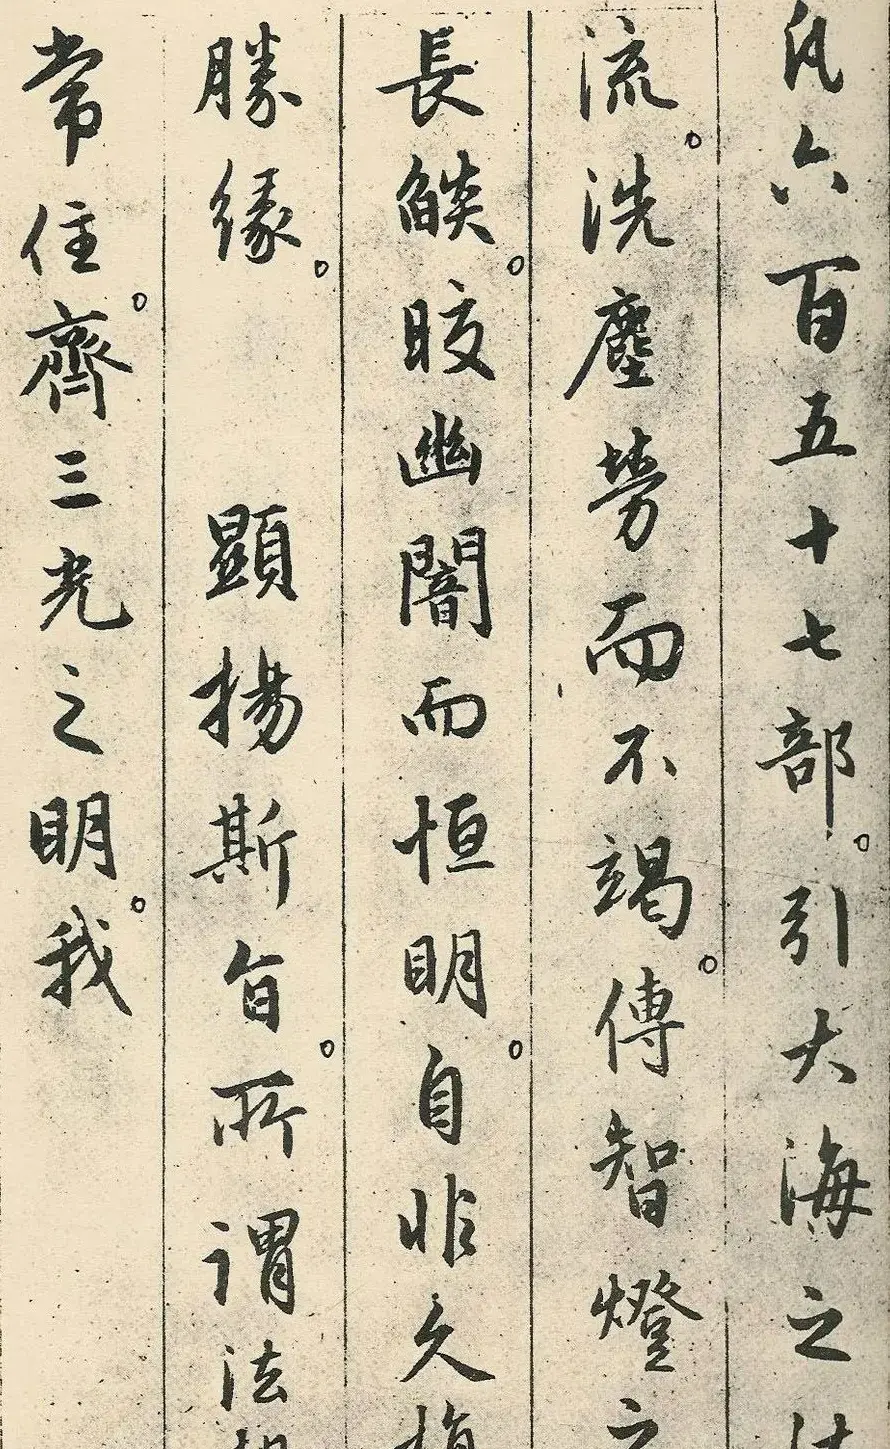 凡六百五十七部。引大海之法
流。洗塵勞而不竭。傳智燈之
長燄。皎幽闇而恒明。自非久植
勝緣。顯揚斯旨。所謂法相
常住。齊三光之明。我